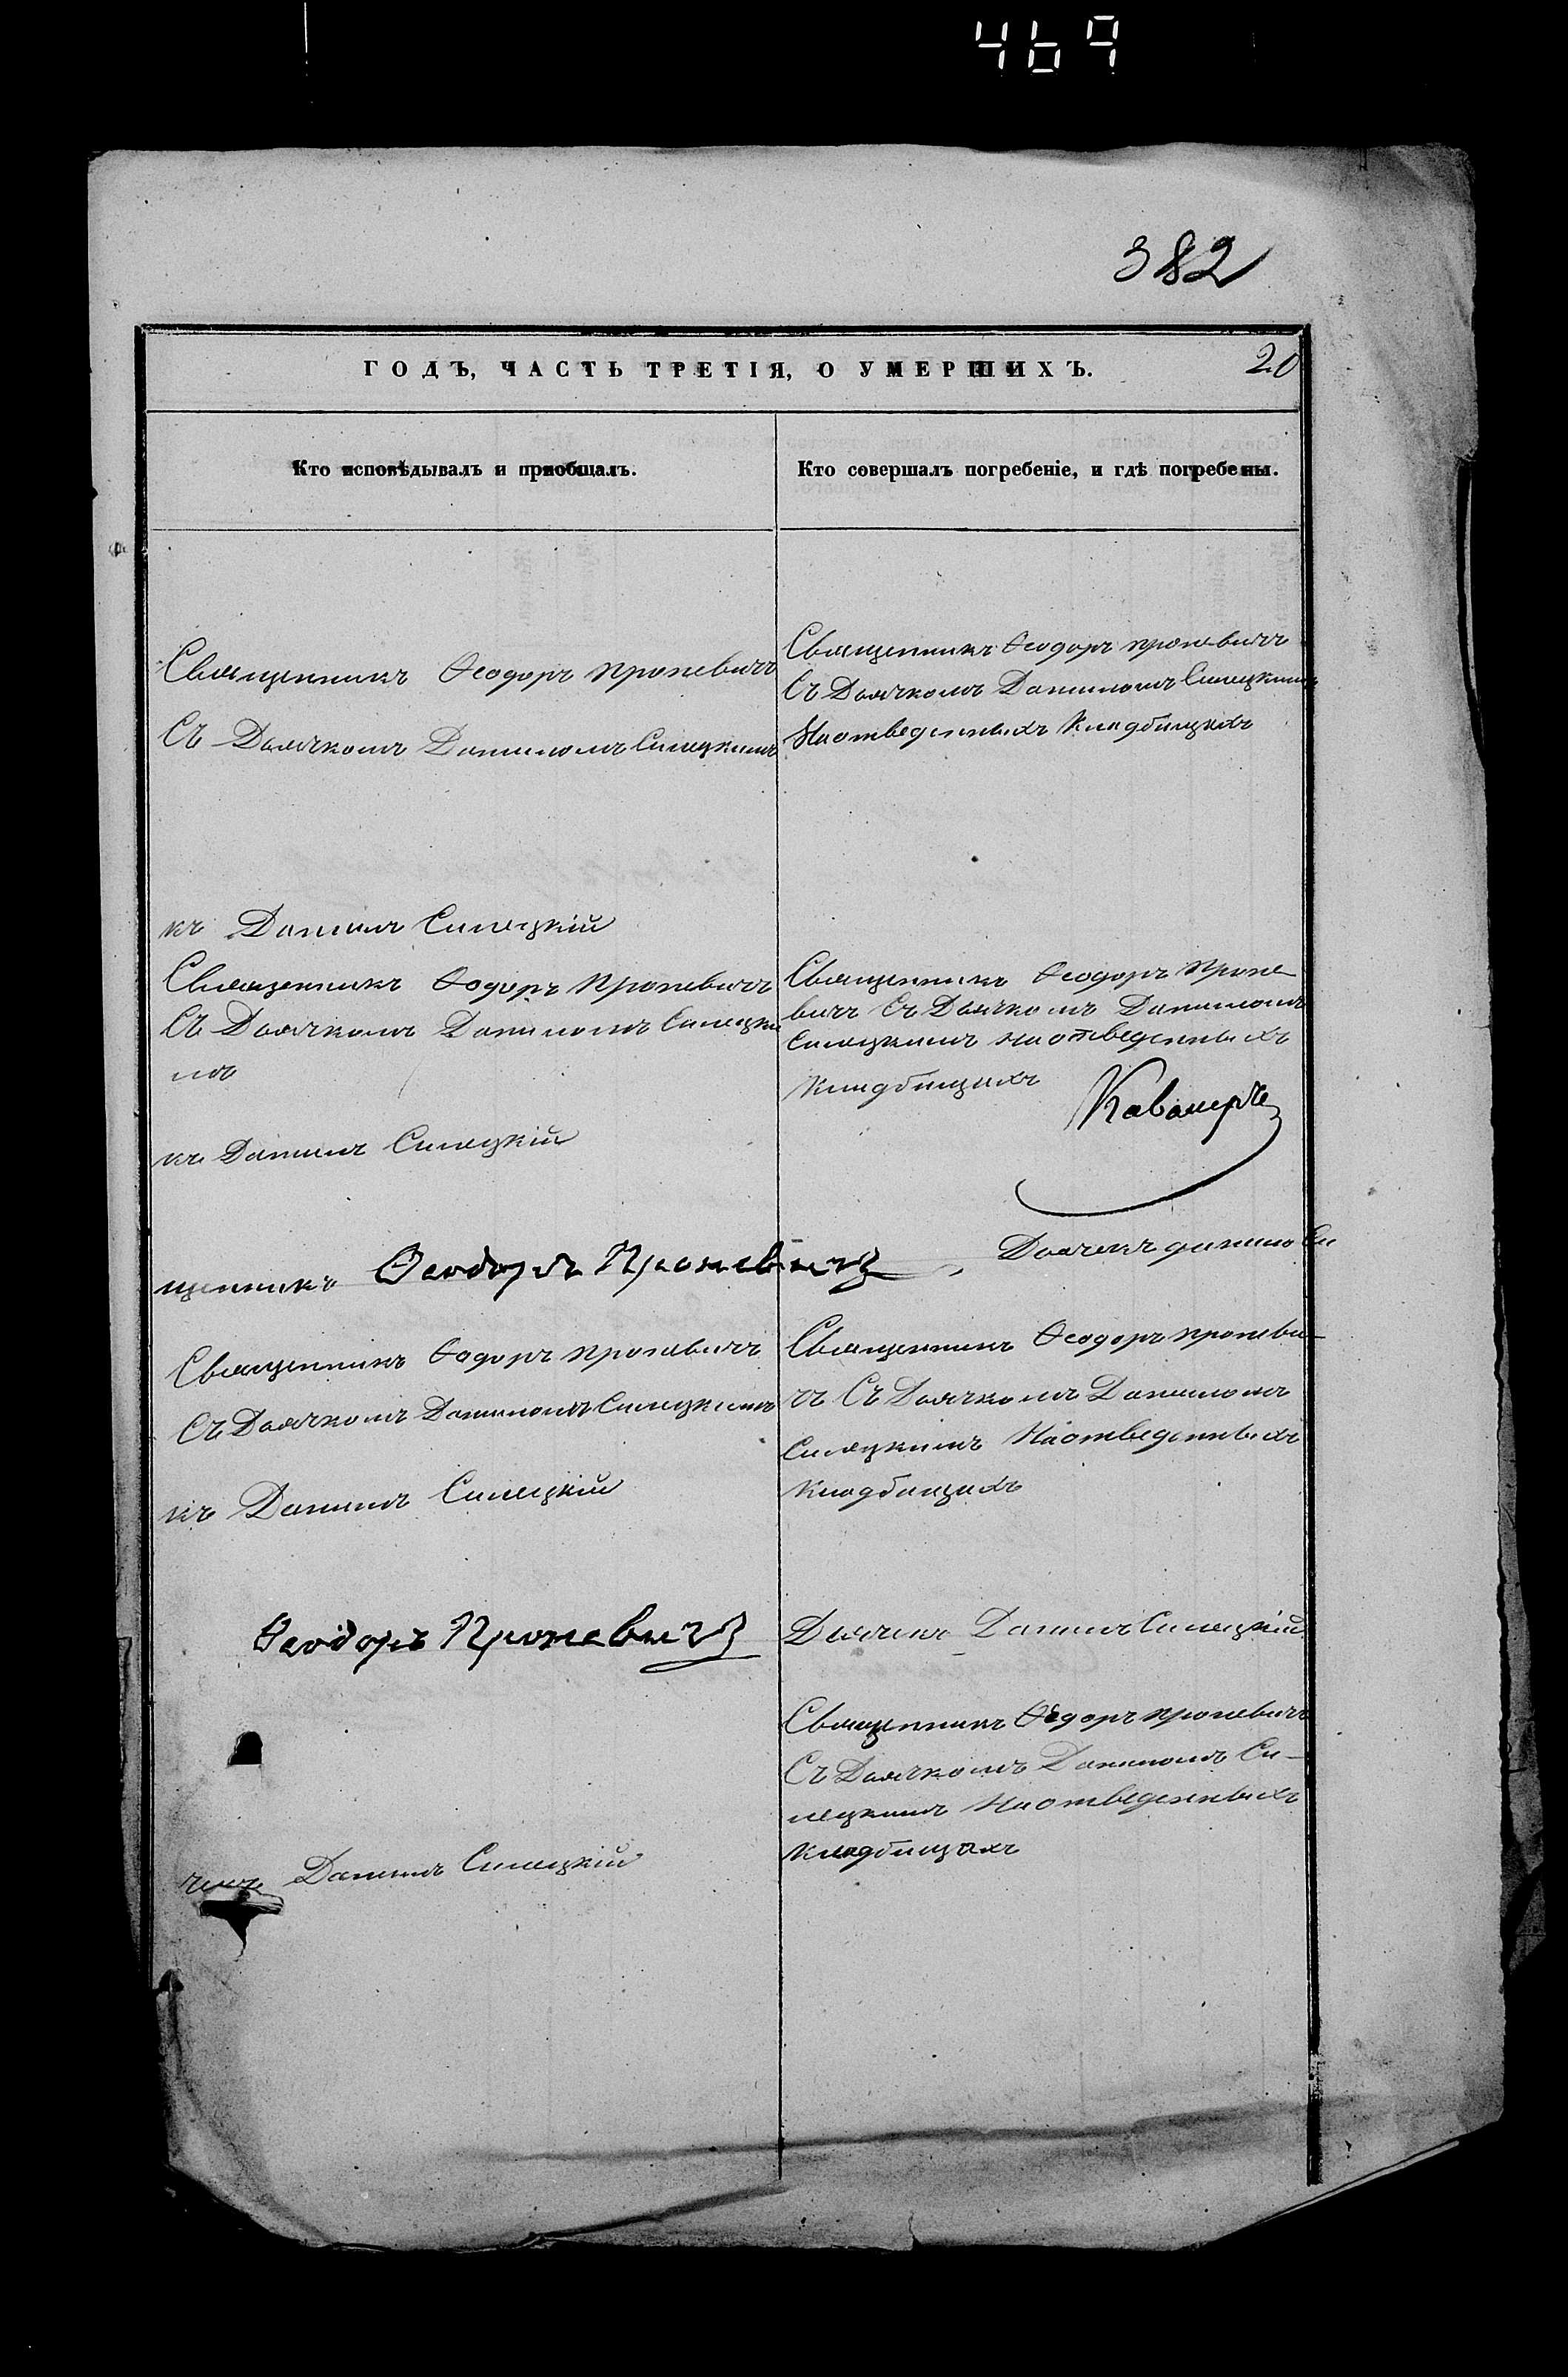 469
382
ГОДЪ, ЧАСТЬ ТРЕТІЯ, О УМЕРШИХЪ.
20
Кто исповѣдывалъ и приобщалъ.
Кто совершалъ погребеніе, и гдѣ погребены.
Священникъ Ѳеодоръ Проневичъ
Съ Дьячкомъ Даниломъ Силецкимъ
Священникъ Ѳеодоръ проневичъ
Съ Дьячкомъ Даниломъ Силецкимъ
На отведенныхъ Кладбищахъ
къ Данилъ Силецкій
Священникъ Ѳодоръ Проневичъ
Съ Дьячкомъ Даниломъ Силецки
мъ
Священникъ Ѳеодоръ Проне-
вичъ Съ Дьячкомъ Даниломъ
Силецкимъ на отведенныхъ
Кладбищахъ
къ Данилъ Силецкій
щенникъ Ѳеодоръ Проневичъ
Дьячекъ данило Си
Священникъ Ѳодоръ проневичъ
Съ Дьячкомъ Даниломъ Силецкимъ
Священникъ Ѳеодоръ проневи-
чъ Съ Дьячкомъ Даниломъ
Силецкимъ На отведенныхъ
Кладбищахъ
къ Данилъ Силецкій
Ѳеодоръ Проневичъ
Дьячекъ Данилъ Силецкій
Священникъ Ѳедоръ проневичъ
Съ Дьячкомъ Даниломъ Си-
лецкимъ На отведенныхъ
Кладбищахъ
Данилъ Силецкій